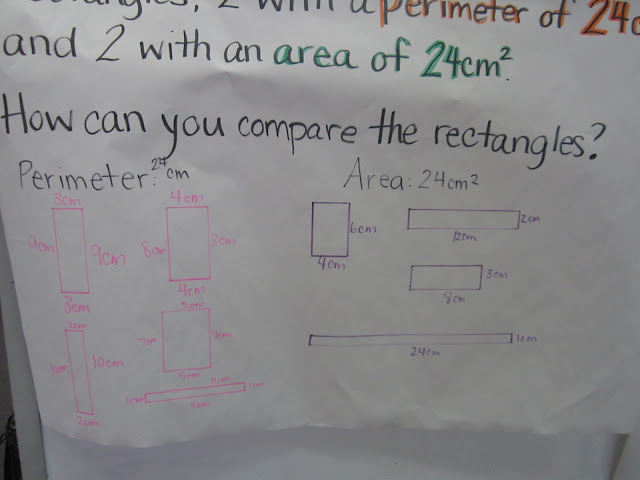 2 with a perimeter of 24c
and 2 with an area of 24cm²
How can you compare the rectangles?
Perimeter: 24 cm
Area: 24cm²
3cm
4cm
9cm
9cm
8cm
8cm
3cm
4cm
6cm
4cm
2cm
12cm
3cm
8cm
2cm
10cm
10cm
2cm
5cm
7cm
7cm
5cm
11cm
1cm
1cm
11cm
1cm
24cm